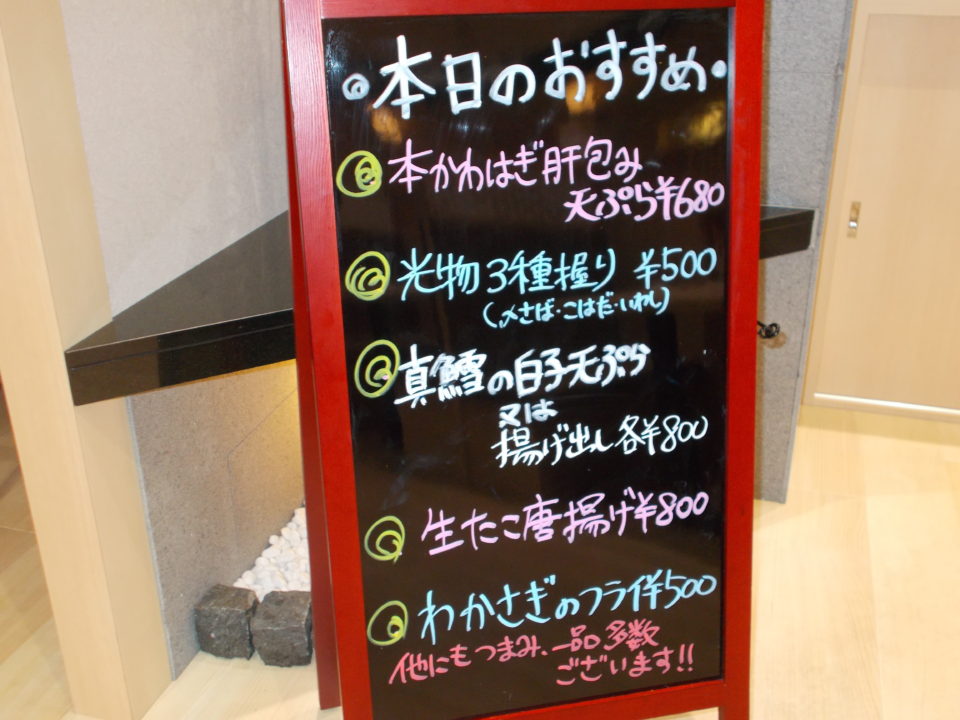 本日のおすすめ
本かわはぎ肝包み
天ぷら¥680
光物3種握り ¥500
(〆さば・こはだ・いわし)
真鱈の白子天ぷら
又は
揚げ出し各¥800
生たこ唐揚げ¥800
わかさぎのフライ¥500
他にもつまみ、一品多数
ございます!!